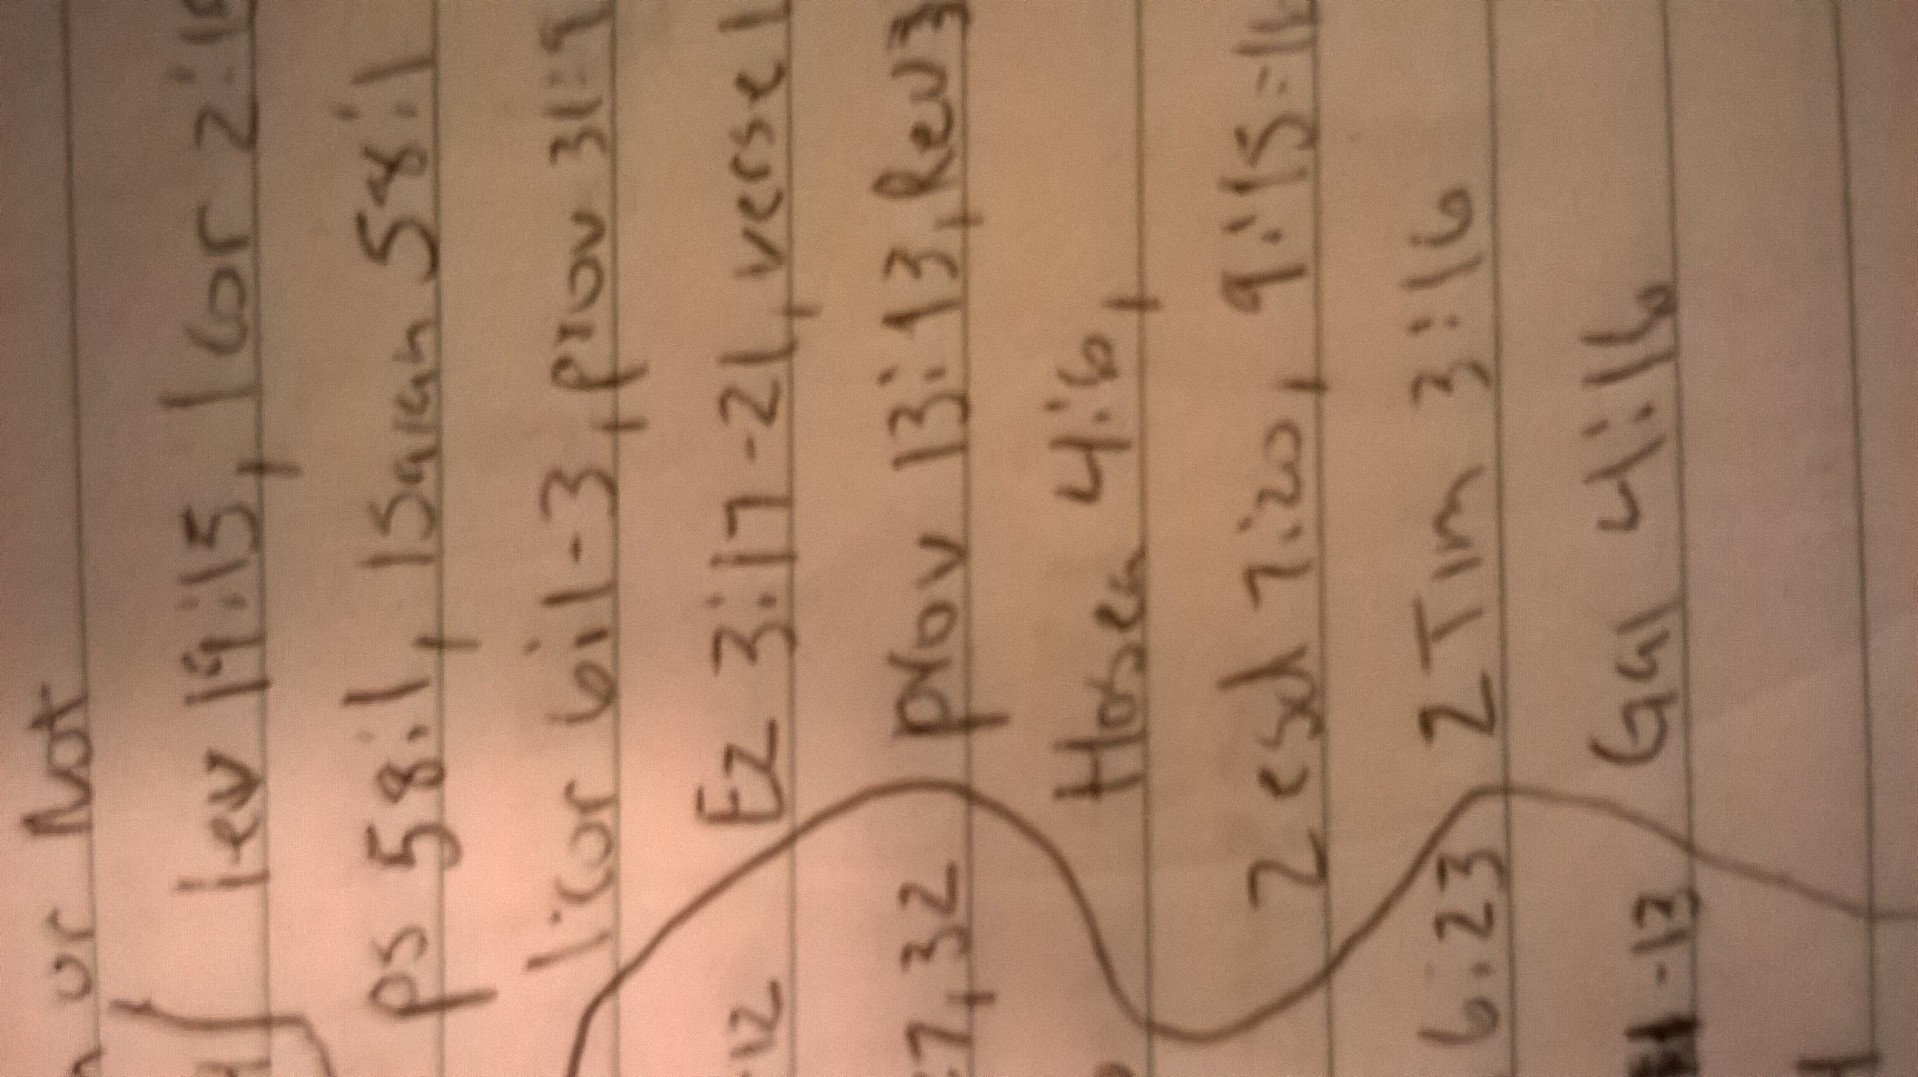 or Not
lev 19:15, 1 Cor 2:15
ps 58:1, Isaiah 58:1
1 cor 6:1-3, prov 31:9
12 Ez 3:17-21, verse 1
7, 32 prov 13:13, Rev 3
Hosea 4:6,
2 esd 7:20, 9:15-16
6:23 2 Tim 3:16
-13 Gal 4:16